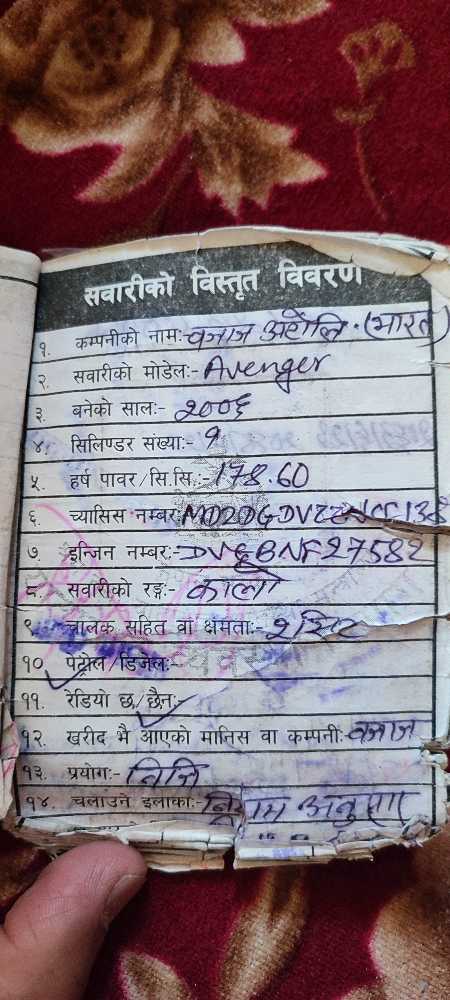 सवारीको विस्तृत विवरण
१. कम्पनीको नामः- वजाज अटोलि. (भारत)
२. सवारीको मोडेलः- Avenger
३ बनेको सालः- २००६
४. सिलिण्डर संख्याः- १
५ हर्ष पावर/सि.सि.:- 178.60
६. च्यासिस नम्बरः
७. इन्जिन नम्बरः- DVGBNF27582
८. सवारीको रङ्गः- कालो
९. चालक सहित वा क्षमताः- २ सिट
१० पेट्रोल/डिजेलः-
११. रेडियो छ/छैनः-
१२. खरीद भै आएको मानिस वा कम्पनीः- वजाज
१३. प्रयोगः- निजि
१४. चलाउने इलाकाः- नियम अनुसार